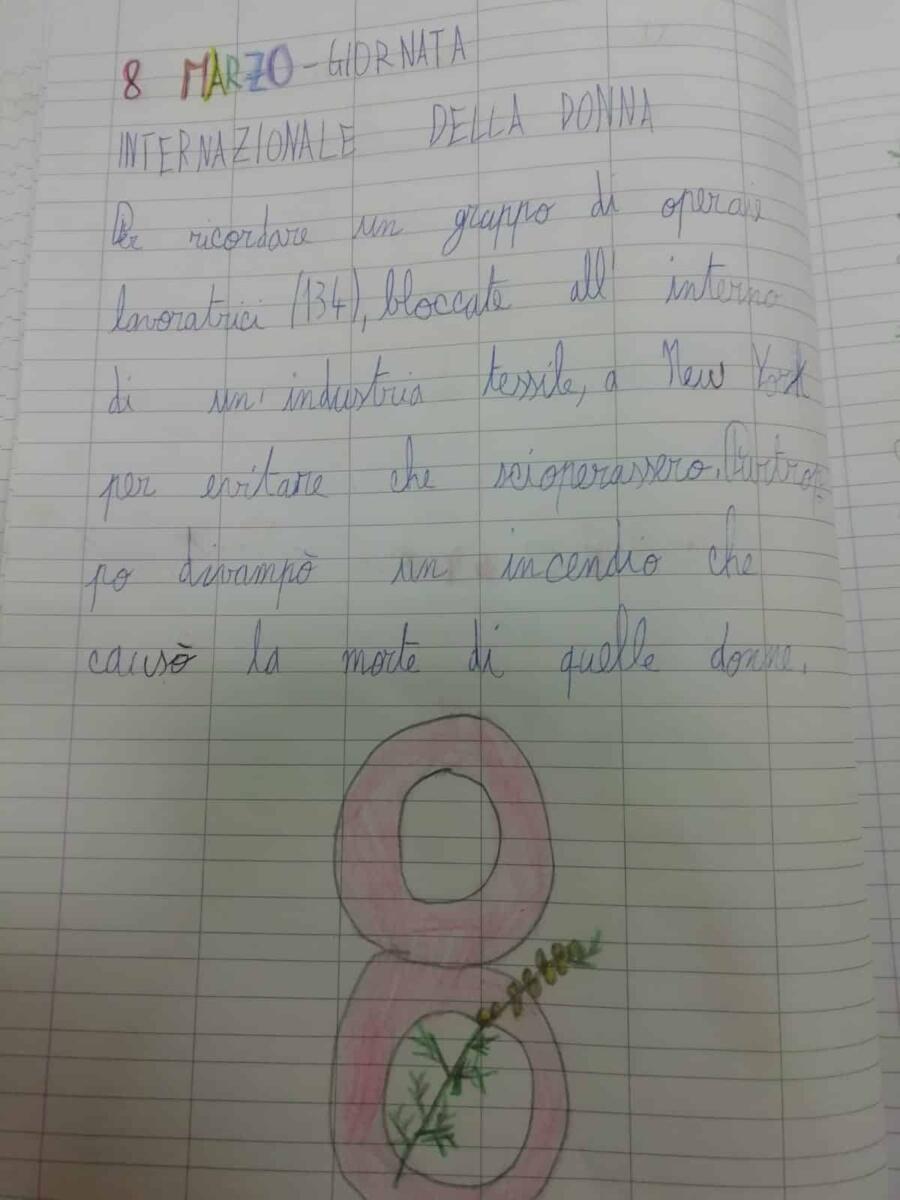 8 MARZO - GIORNATA
INTERNAZIONALE DELLA DONNA
Per ricordare un gruppo di operaie
lavoratrici (134), bloccate all' interno
di un' industria tessile, a New York
per evitare che scioperassero. Purtrop-
po divampò un incendio che
causò la morte di quelle donne.